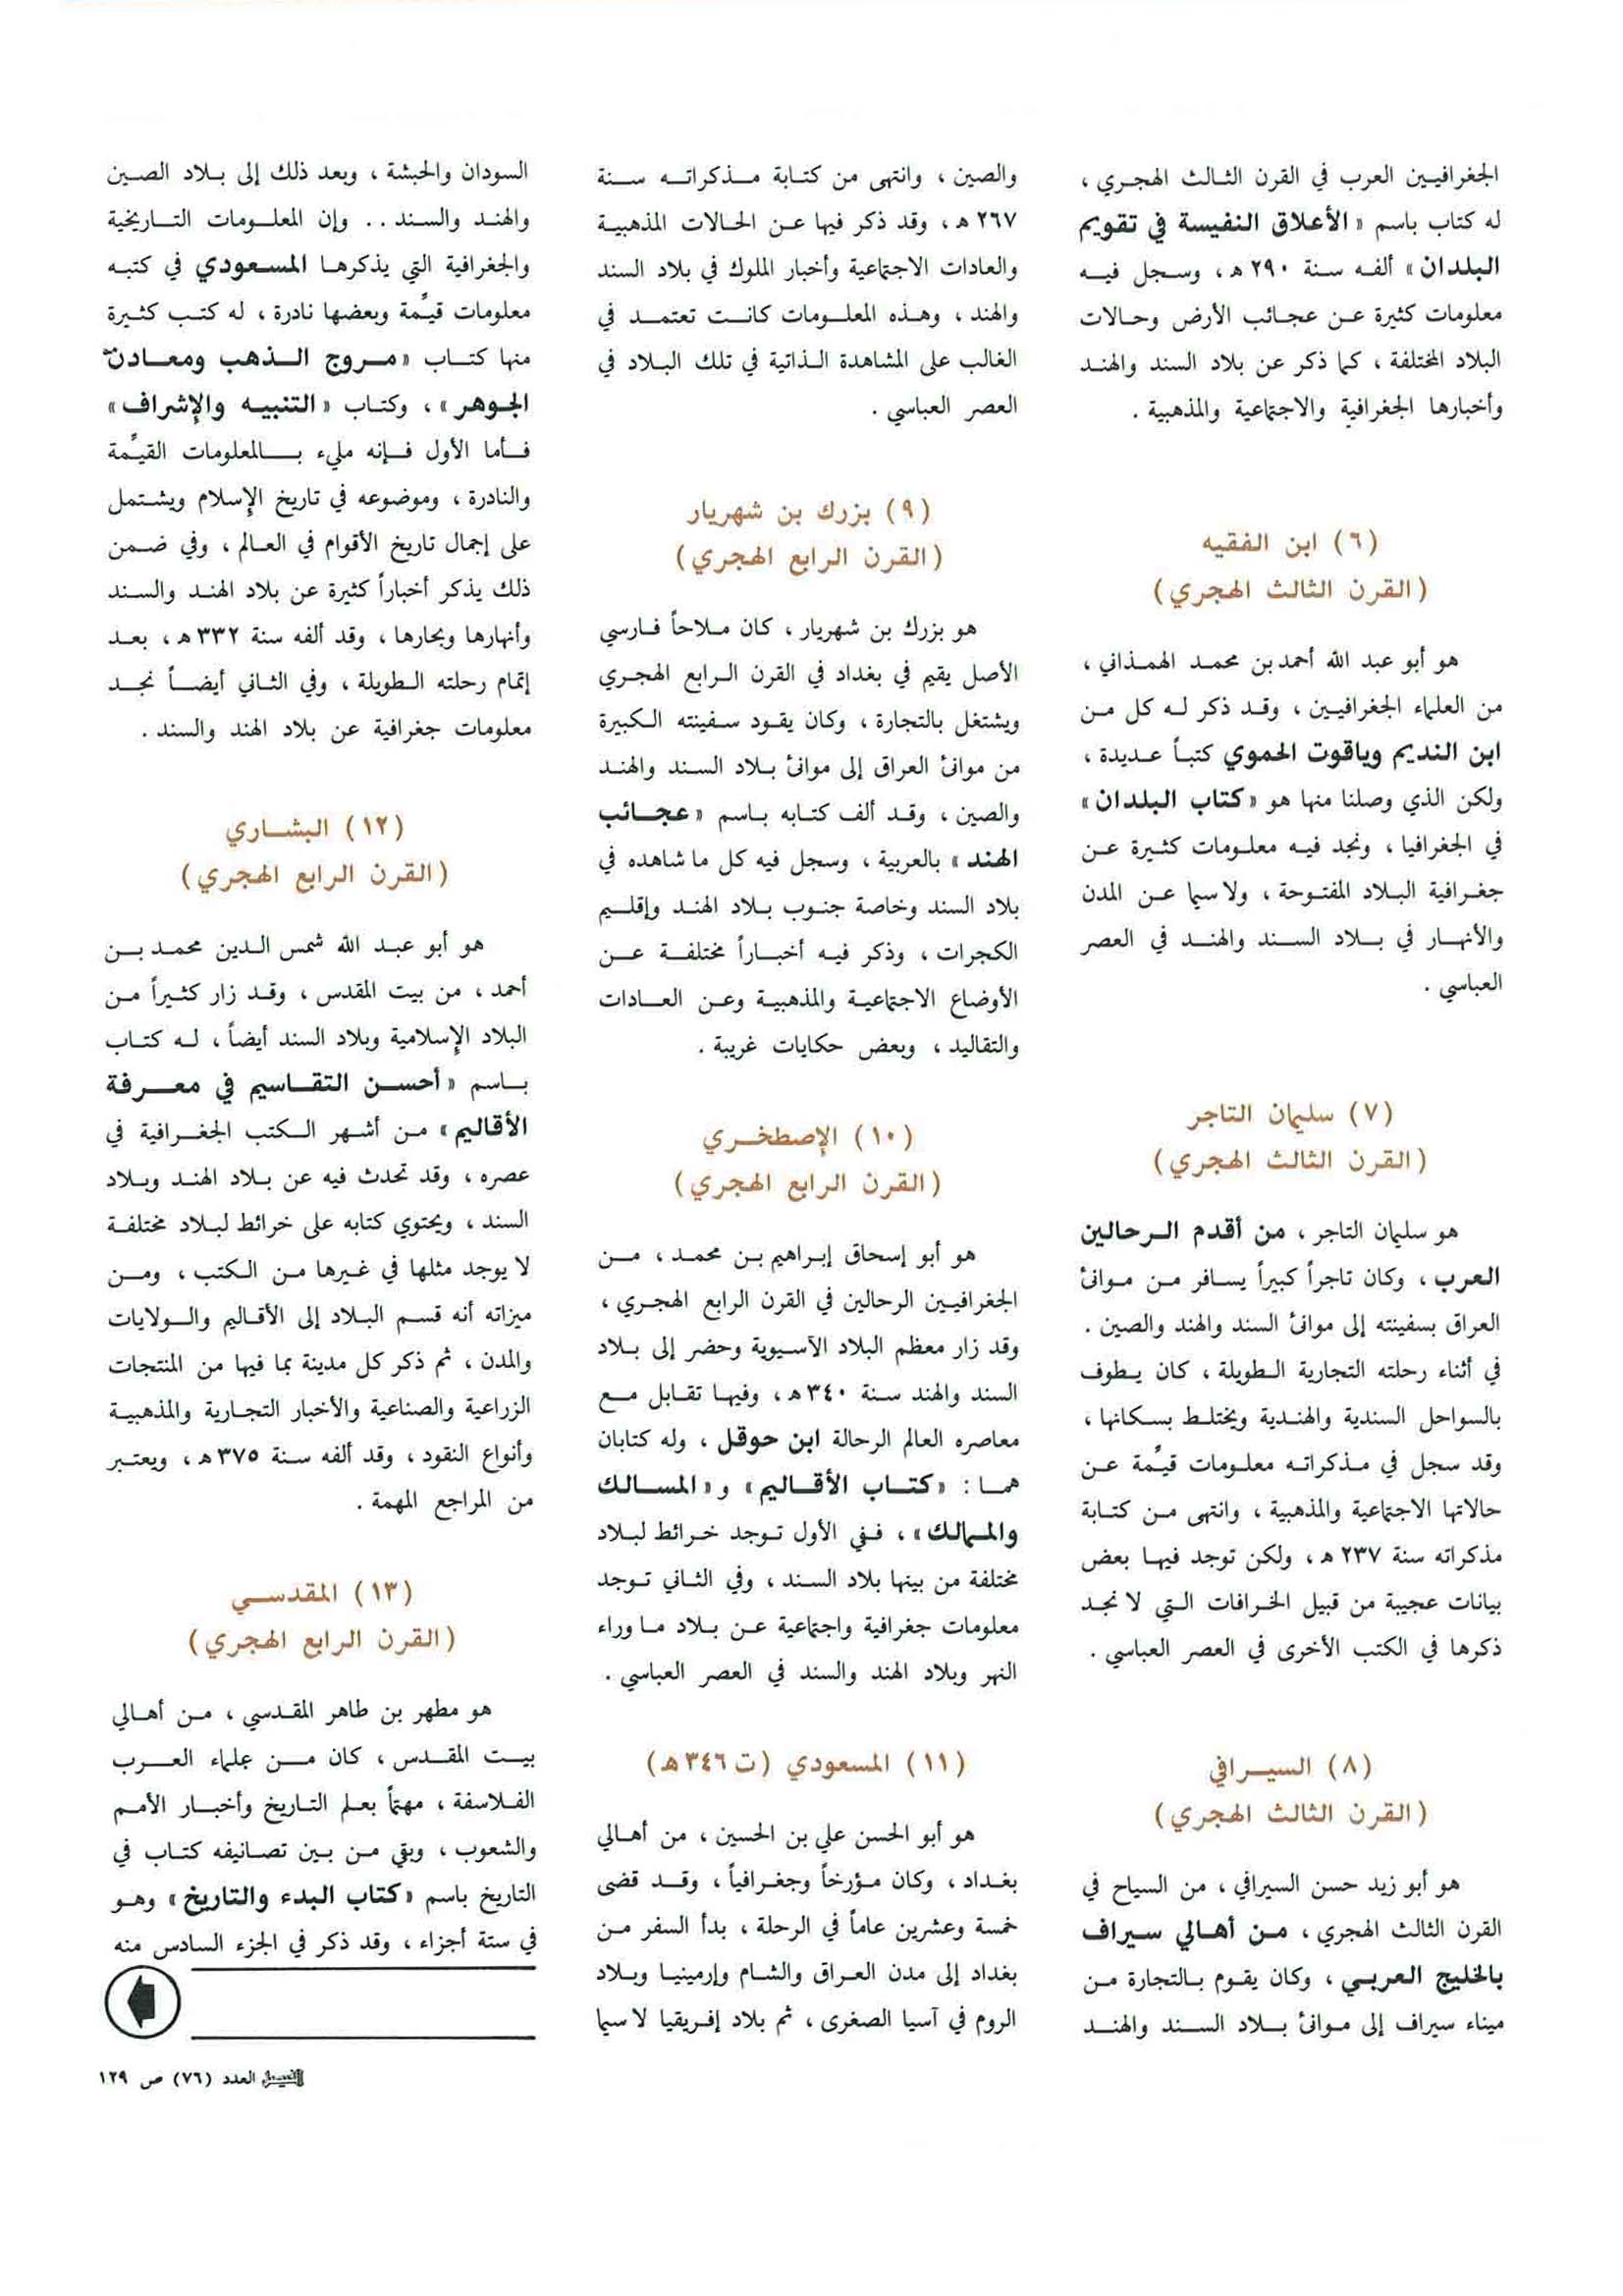 الجغرافيين العرب في القرن الثالث الهجري ،
له كتاب باسم « الأعلاق النفيسة في تقويم
البلدان » ألفه سنة ٢٩٠ هـ ، وسجل فيه
معلومات كثيرة عن عجائب الأرض وحالات
البلاد المختلفة ، كما ذكر عن بلاد السند والهند
وأخبارها الجغرافية والاجتماعية والمذهبية .
(٦) ابن الفقيه
(القرن الثالث الهجري)
هو أبو عبد الله أحمد بن محمد الهمذاني ،
من العلماء الجغرافيين ، وقد ذكر له كل من
ابن النديم وياقوت الحموي كتباً عديدة ،
ولكن الذي وصلنا منها هو « كتاب البلدان »
في الجغرافيا ، ونجد فيه معلومات كثيرة عن
جغرافية البلاد المفتوحة ، ولا سيما عن المدن
والأنهار في بلاد السند والهند في العصر
العباسي .
(٧) سليمان التاجر
(القرن الثالث الهجري)
هو سليمان التاجر ، من أقدم الرحالين
العرب ، وكان تاجراً كبيراً يسافر من موانئ
العراق بسفينته إلى موانئ السند والهند والصين .
في أثناء رحلته التجارية الطويلة ، كان يطوف
بالسواحل السندية والهندية ويختلط بسكانها ،
وقد سجل في مذكراته معلومات قيِّمة عن
حالاتها الاجتماعية والمذهبية ، وانتهى من كتابة
مذكراته سنة ٢٣٧ هـ ، ولكن توجد فيها بعض
بيانات عجيبة من قبيل الخرافات التي لا نجد
ذكرها في الكتب الأخرى في العصر العباسي .
(٨) السيرافي
(القرن الثالث الهجري)
هو أبو زيد حسن السيرافي ، من السياح في
القرن الثالث الهجري ، من أهالي سيراف
بالخليج العربي ، وكان يقوم بالتجارة من
ميناء سيراف إلى موانئ بلاد السند والهند
والصين ، وانتهى من كتابة مذكراته سنة
٢٦٧ هـ ، وقد ذكر فيها عن الحالات المذهبية
والعادات الاجتماعية وأخبار الملوك في بلاد السند
والهند ، وهذه المعلومات كانت تعتمد في
الغالب على المشاهدة الذاتية في تلك البلاد في
العصر العباسي .
(٩) بزرك بن شهريار
(القرن الرابع الهجري)
هو بزرك بن شهريار ، كان ملاحاً فارسي
الأصل يقيم في بغداد في القرن الرابع الهجري
ويشتغل بالتجارة ، وكان يقود سفينته الكبيرة
من موانئ العراق إلى موانئ بلاد السند والهند
والصين ، وقد ألف كتابه باسم « عجائب
الهند » بالعربية ، وسجل فيه كل ما شاهده في
بلاد السند وخاصة جنوب بلاد الهند وإقليم
الكجرات ، وذكر فيه أخباراً مختلفة عن
الأوضاع الاجتماعية والمذهبية وعن العادات
والتقاليد ، وبعض حكايات غريبة .
(١٠) الإصطخري
(القرن الرابع الهجري)
هو أبو إسحاق إبراهيم بن محمد ، من
الجغرافيين الرحالين في القرن الرابع الهجري ،
وقد زار معظم البلاد الآسيوية وحضر إلى بلاد
السند والهند سنة ٣٤٠ هـ ، وفيها تقابل مع
معاصره العالم الرحالة ابن حوقل ، وله كتابان
هما : « كتاب الأقاليم » و « المسالك
والممالك » ، ففي الأول توجد خرائط لبلاد
مختلفة من بينها بلاد السند ، وفي الثاني توجد
معلومات جغرافية واجتماعية عن بلاد ما وراء
النهر وبلاد الهند والسند في العصر العباسي .
(١١) المسعودي (ت ٣٤٦ هـ)
هو أبو الحسن علي بن الحسين ، من أهالي
بغداد ، وكان مؤرخاً وجغرافياً ، وقد قضى
خمسة وعشرين عاماً في الرحلة ، بدأ السفر من
بغداد إلى مدن العراق والشام وإرمينيا وبلاد
الروم في آسيا الصغرى ، ثم بلاد إفريقيا لا سيما
السودان والحبشة ، وبعد ذلك إلى بلاد الصين
والهند والسند .. وإن المعلومات التاريخية
والجغرافية التي يذكرها المسعودي في كتبه
معلومات قيِّمة وبعضها نادرة ، له كتب كثيرة
منها كتاب « مروج الذهب ومعادن
الجوهر » ، وكتاب « التنبيه والإشراف »
فأما الأول فإنه مليء بالمعلومات القيِّمة
والنادرة ، وموضوعه في تاريخ الإسلام ويشتمل
على إجمال تاريخ الأقوام في العالم ، وفي ضمن
ذلك يذكر أخباراً كثيرة عن بلاد الهند والسند
وأنهارها وبحارها ، وقد ألفه سنة ٣٣٢ هـ ، بعد
إتمام رحلته الطويلة ، وفي الثاني أيضاً نجد
معلومات جغرافية عن بلاد الهند والسند .
(١٢) البشاري
(القرن الرابع الهجري)
هو أبو عبد الله شمس الدين محمد بن
أحمد ، من بيت المقدس ، وقد زار كثيراً من
البلاد الإسلامية وبلاد السند أيضاً ، له كتاب
باسم « أحسن التقاسيم في معرفة
الأقاليم » من أشهر الكتب الجغرافية في
عصره ، وقد تحدث فيه عن بلاد الهند وبلاد
السند ، ويحتوي كتابه على خرائط لبلاد مختلفة
لا يوجد مثلها في غيرها من الكتب ، ومن
ميزاته أنه قسم البلاد إلى الأقاليم والولايات
والمدن ، ثم ذكر كل مدينة بما فيها من المنتجات
الزراعية والصناعية والأخبار التجارية والمذهبية
وأنواع النقود ، وقد ألفه سنة ٣٧٥ هـ ، ويعتبر
من المراجع المهمة .
(١٣) المقدسي
(القرن الرابع الهجري)
هو مطهر بن طاهر المقدسي ، من أهالي
بيت المقدس ، كان من علماء العرب
الفلاسفة ، مهتماً بعلم التاريخ وأخبار الأمم
والشعوب ، وبقي من بين تصانيفه كتاب في
التاريخ باسم « كتاب البدء والتاريخ » وهو
في ستة أجزاء ، وقد ذكر في الجزء السادس منه
الفيصل العدد (٧٦) ص ١٢٩